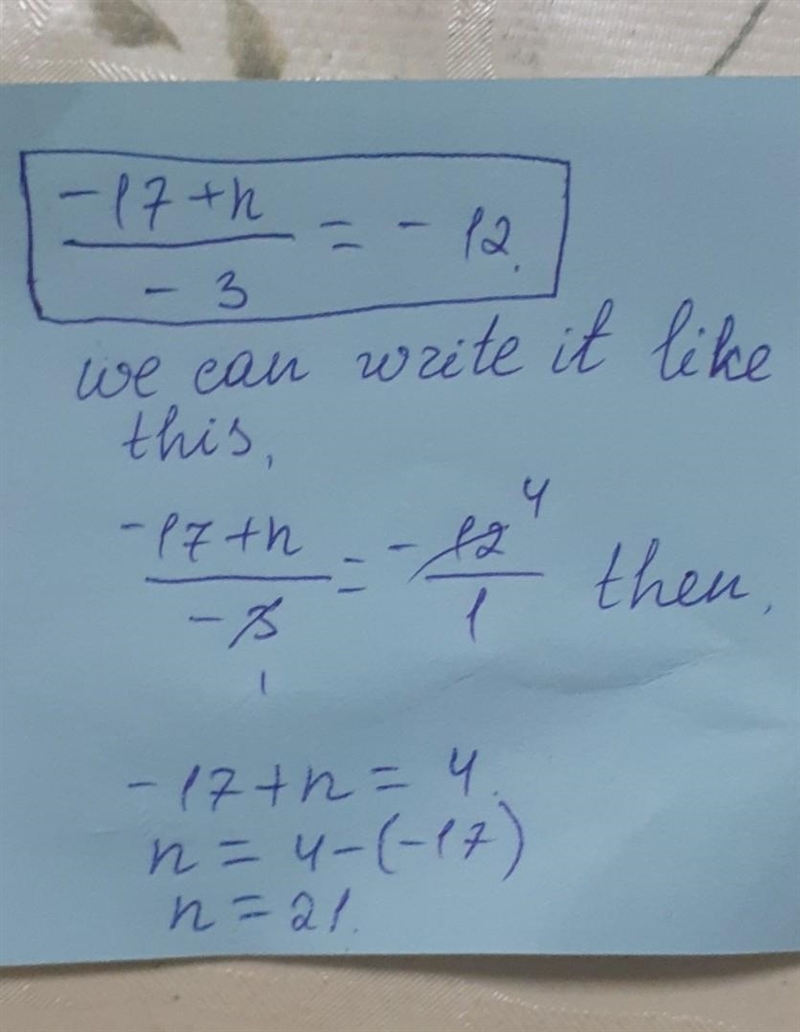 -17+n / -3 = - 12.
we can write it like
this,
-17+n / -3 = - 12 / 1 then,
4
1
-17+n = 4.
n = 4-(-17)
n = 21.